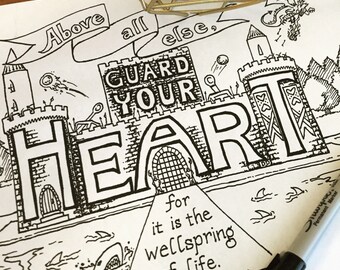 Above all else,
GUARD
YOUR
HEART
for
it is the
wellspring
of life.